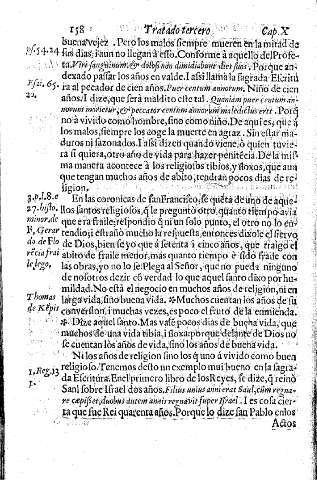 158 Tratado tercero. Cap. X
buena vejez. Pero los malos siempre mueren en la mitad de
sus dias, i aun no llegan à esso. Conforme à aquello del Profe-
ps. 54.24.
ta. Viri sanguinum, & dolosi non dimidiabunt dies suos. Porque an
dexado passar los años en valde. I assi llama la sagrada Escritu
Isai. 65.
ra al pecador de cien años. Puer centum annorum. Niño de cien
20.
años. I dize, que serà maldito este tal. Quoniam puer centum an-
norum morietur, & peccator centum annorum maledictus erit. Porq̃
no à vivido como hombre, sino como niño. De aqui es, que à
los malos, siempre los coge la muerte en agraz. Sin estar ma-
duros ni sazonados. I assi dizen quando viene, ò quien tuvie
ra si quiera, otro año de vida para hazer penitẽcia. De la mis-
ma manera acontece à los religiosos tibios, y floxos, que aun
que tengan muchos años de abito, tendràn pocos dias de re-
ligion.
3.p.l.8.c
En las coronicas de san Francisco, se cuẽta de uno de aque-
27. histo.
llos santos religiosos, q̃ le preguntò otro, quanto tiempo avia
minor. de
que era fraile, i respondiò q̃ ni un solo punto, el otro no lo en-
F. Gerar
tendio; i estrañò mucho la respuesta, entonces dixole el siervo
do de Flo
de Dios, bien sè yo que à setenta i cinco años, que traigo el
rẽcia frai
abito de fraile menor, mas quanto tiempo è sido fraile con
le lego,
las obras, yo no lo sè. Plega al Señor, que no pueda ninguno
de nosotros dezir cõ verdad lo que aquel santo dixo por hu-
mildad. No està el negocio en muchos años de religion, ni en
Thomas
larga vida, sino buena vida. * Muchos cuentan los años de su
de Kẽpis
conversion; i muchas vezes, es poco el fruto de la enmienda.
* Dize aquel santo. Mas vale pocos dias de buena vida, que
muchos de una vida tibia, i floxa: porque delante de Dios no
se cuentan los años de vida, sino los años de buena vida.
Ni los años de religion sino los q̃ uno à vivido como buen
religioso. Tenemos desto un exemplo mui bueno en la sagra
1. Reg. 13
da Escritura. En el primero libro de los Reyes, se dize, q̃ reinò
1.
Saul sobre Israel dos años. Filius unius anni erat Saul, cum regna-
re cœpisset, duobus autem annis regnavit super Israel. I es cosa cier-
ta que fue Rei quarenta años. Porque lo dize san Pablo en los
Actos